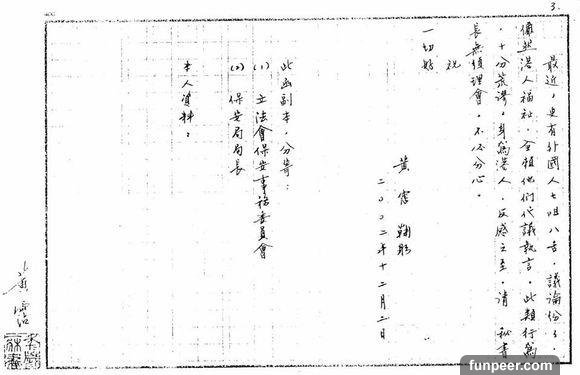 3.
最近,更有外國人七咀八舌,議論份份,
儼然港人福祉,全賴他們代議執言,此類行為
,十分荒謬,身為港人,反感之至,請 秘書
長無須理會,不必分心。
祝
一切好
黃 霑 鞠躬
二〇〇二年十二月二日
此函副本,分寄:
(1) 立法會保安事務委員會
(2) 保安局局長
本人資料:
黃霑
funpeer.com